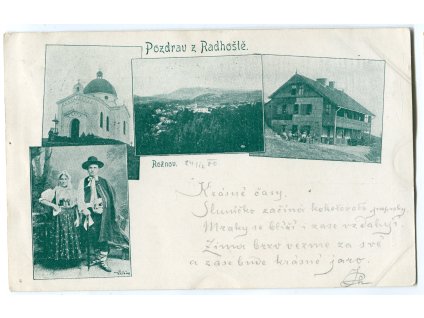 Pozdrav z Radhoště.
Rožnov.
Krásné časy.
Sluníčko začíná
Mraky se blíží i zase vzdalují.
Zima brzo vezme za své
a zase bude krásné jaro.